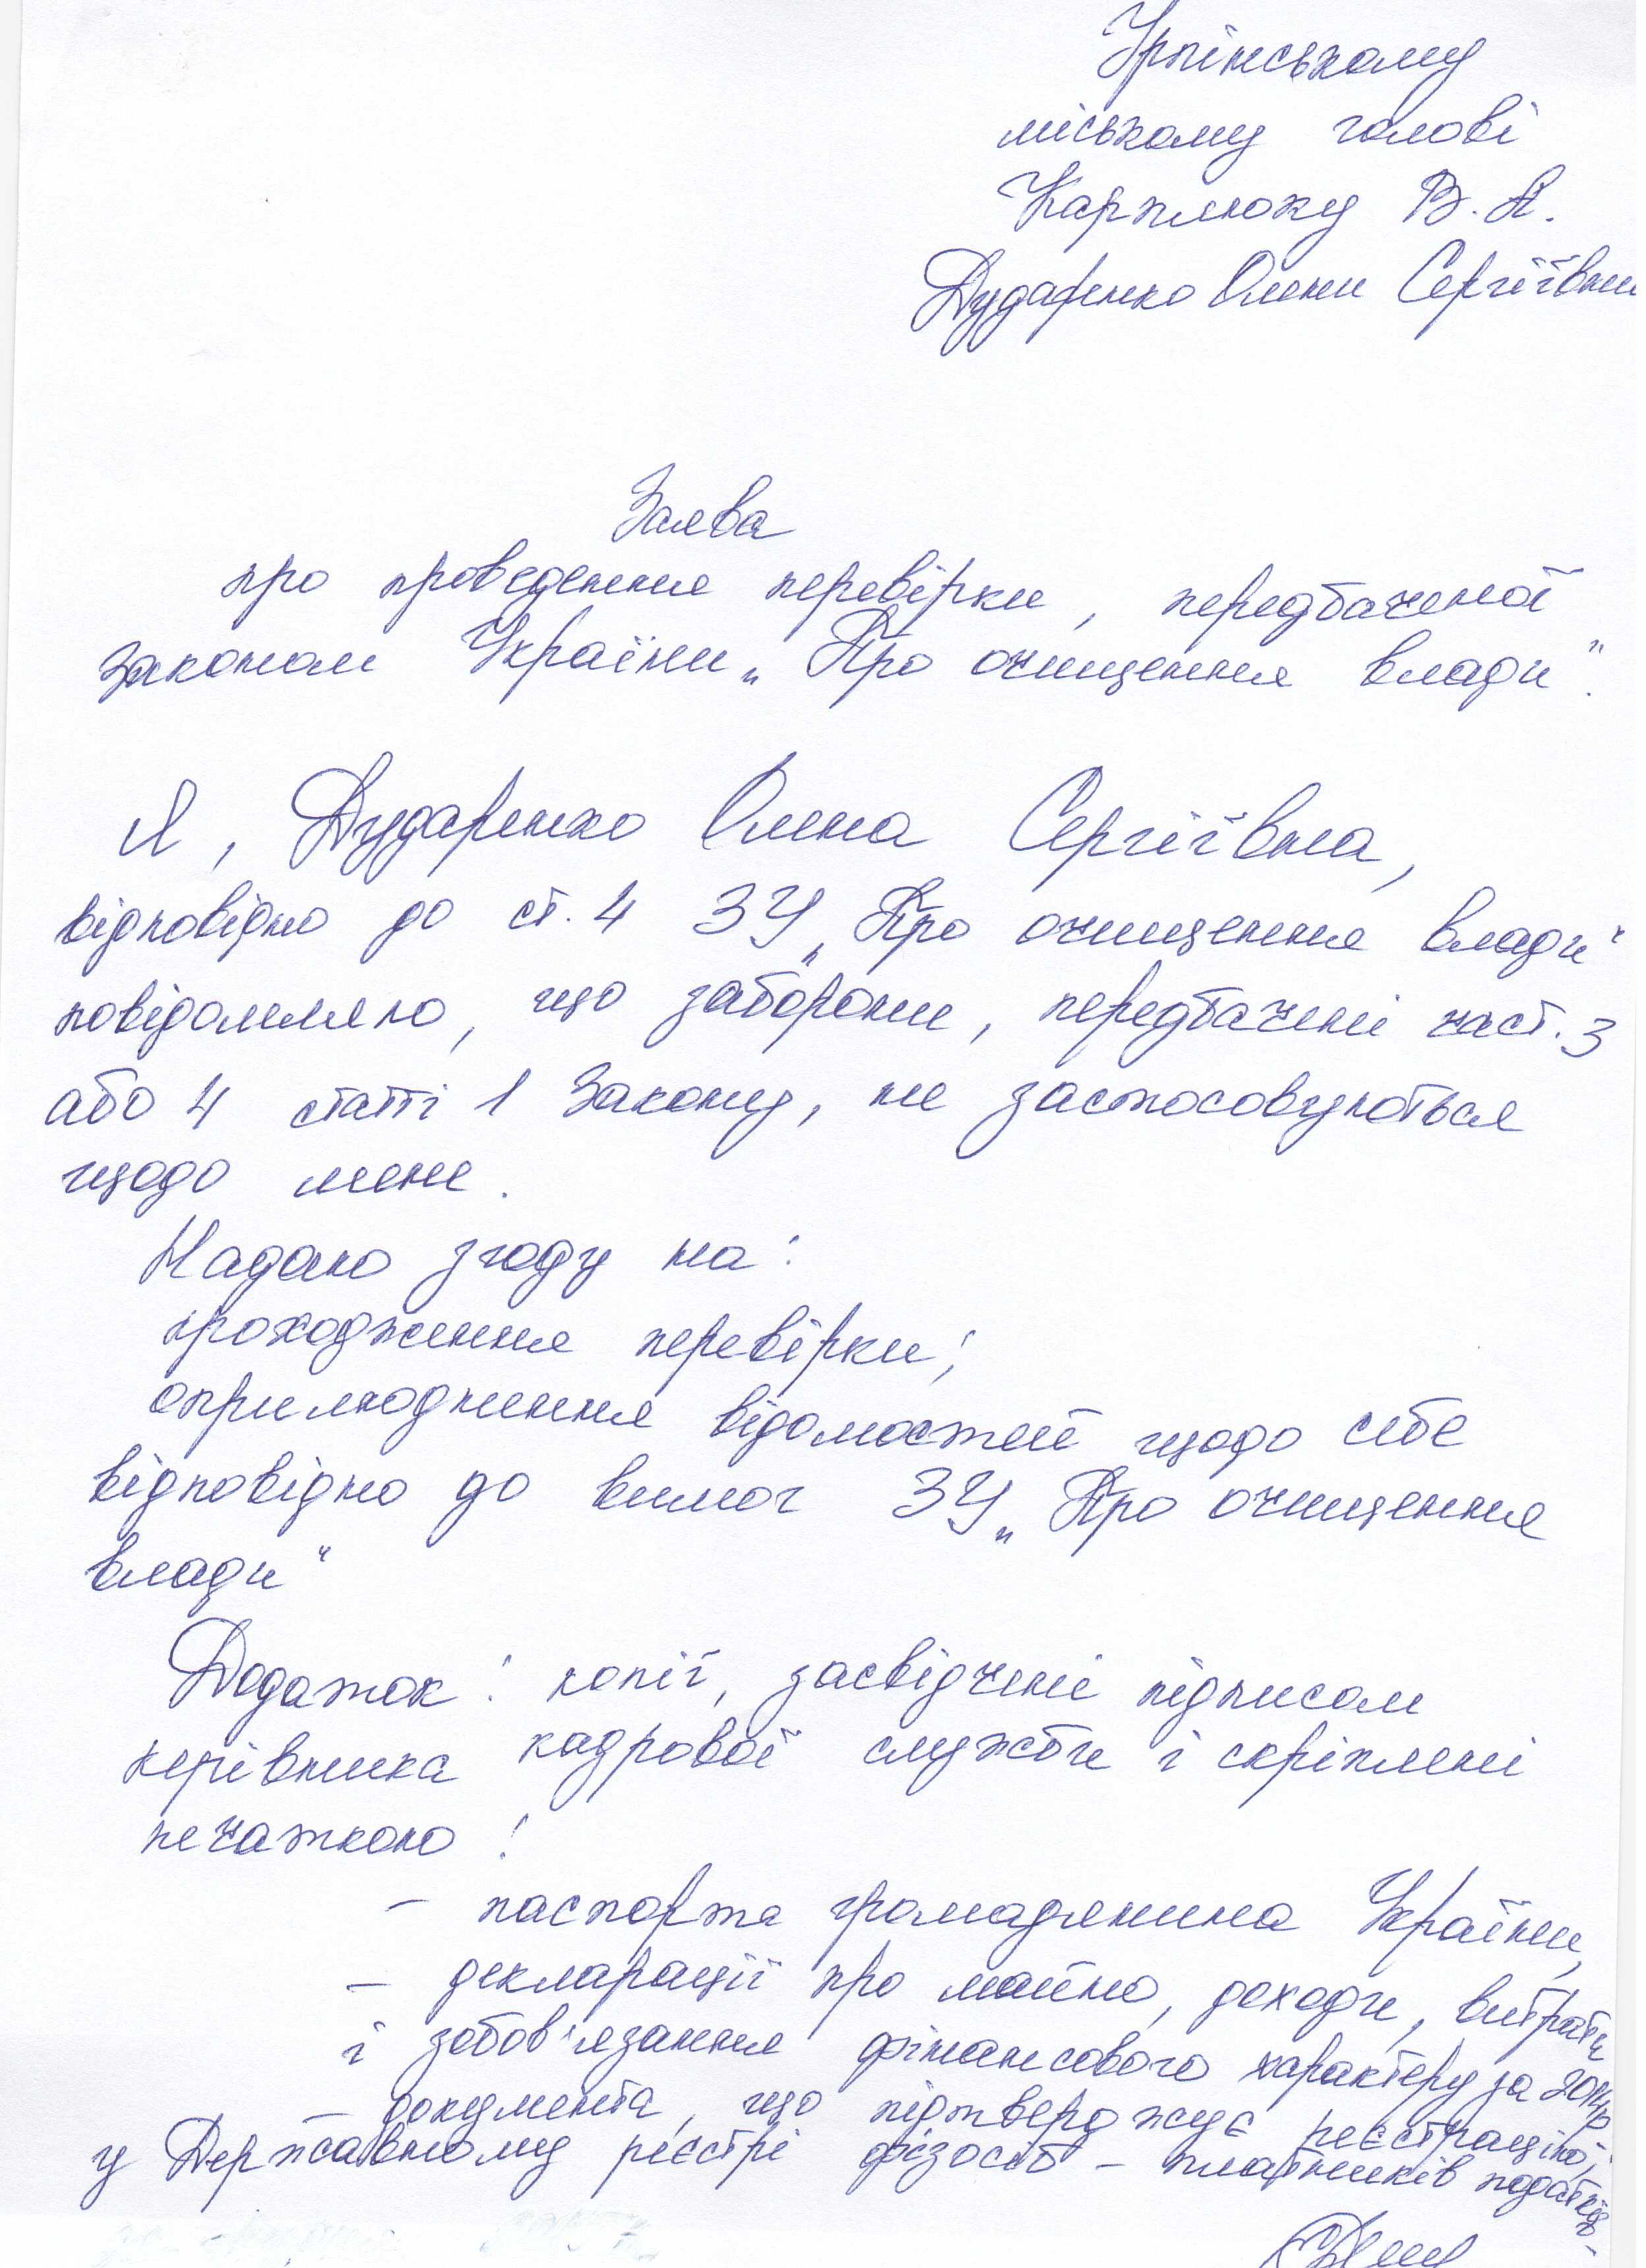 Ірпінському
міському голові
Карплюку В. А.
Дударенко Олени Сергіївни
Заява
про проведення перевірки, передбаченої
Законом України „Про очищення влади".
Я, Дударенко Олена Сергіївна,
відповідно до ст. 4 ЗУ „Про очищення влади"
повідомляю, що заборони, передбачені част. 3
або 4 статті 1 Закону, не застосовуються
щодо мене.
Надаю згоду на:
проходження перевірки;
оприлюднення відомостей щодо себе
відповідно до вимог ЗУ „Про очищення
влади"
Додаток: копії, засвідчені підписом
керівника кадрової служби і скріплені
печаткою:
– паспорта громадянина України,
– декларації про майно, доходи, витрати
і зобов'язання фінансового характеру за 2014р
– документа, що підтверджує реєстрацію,
у Державному реєстрі фізосіб – платників податків.